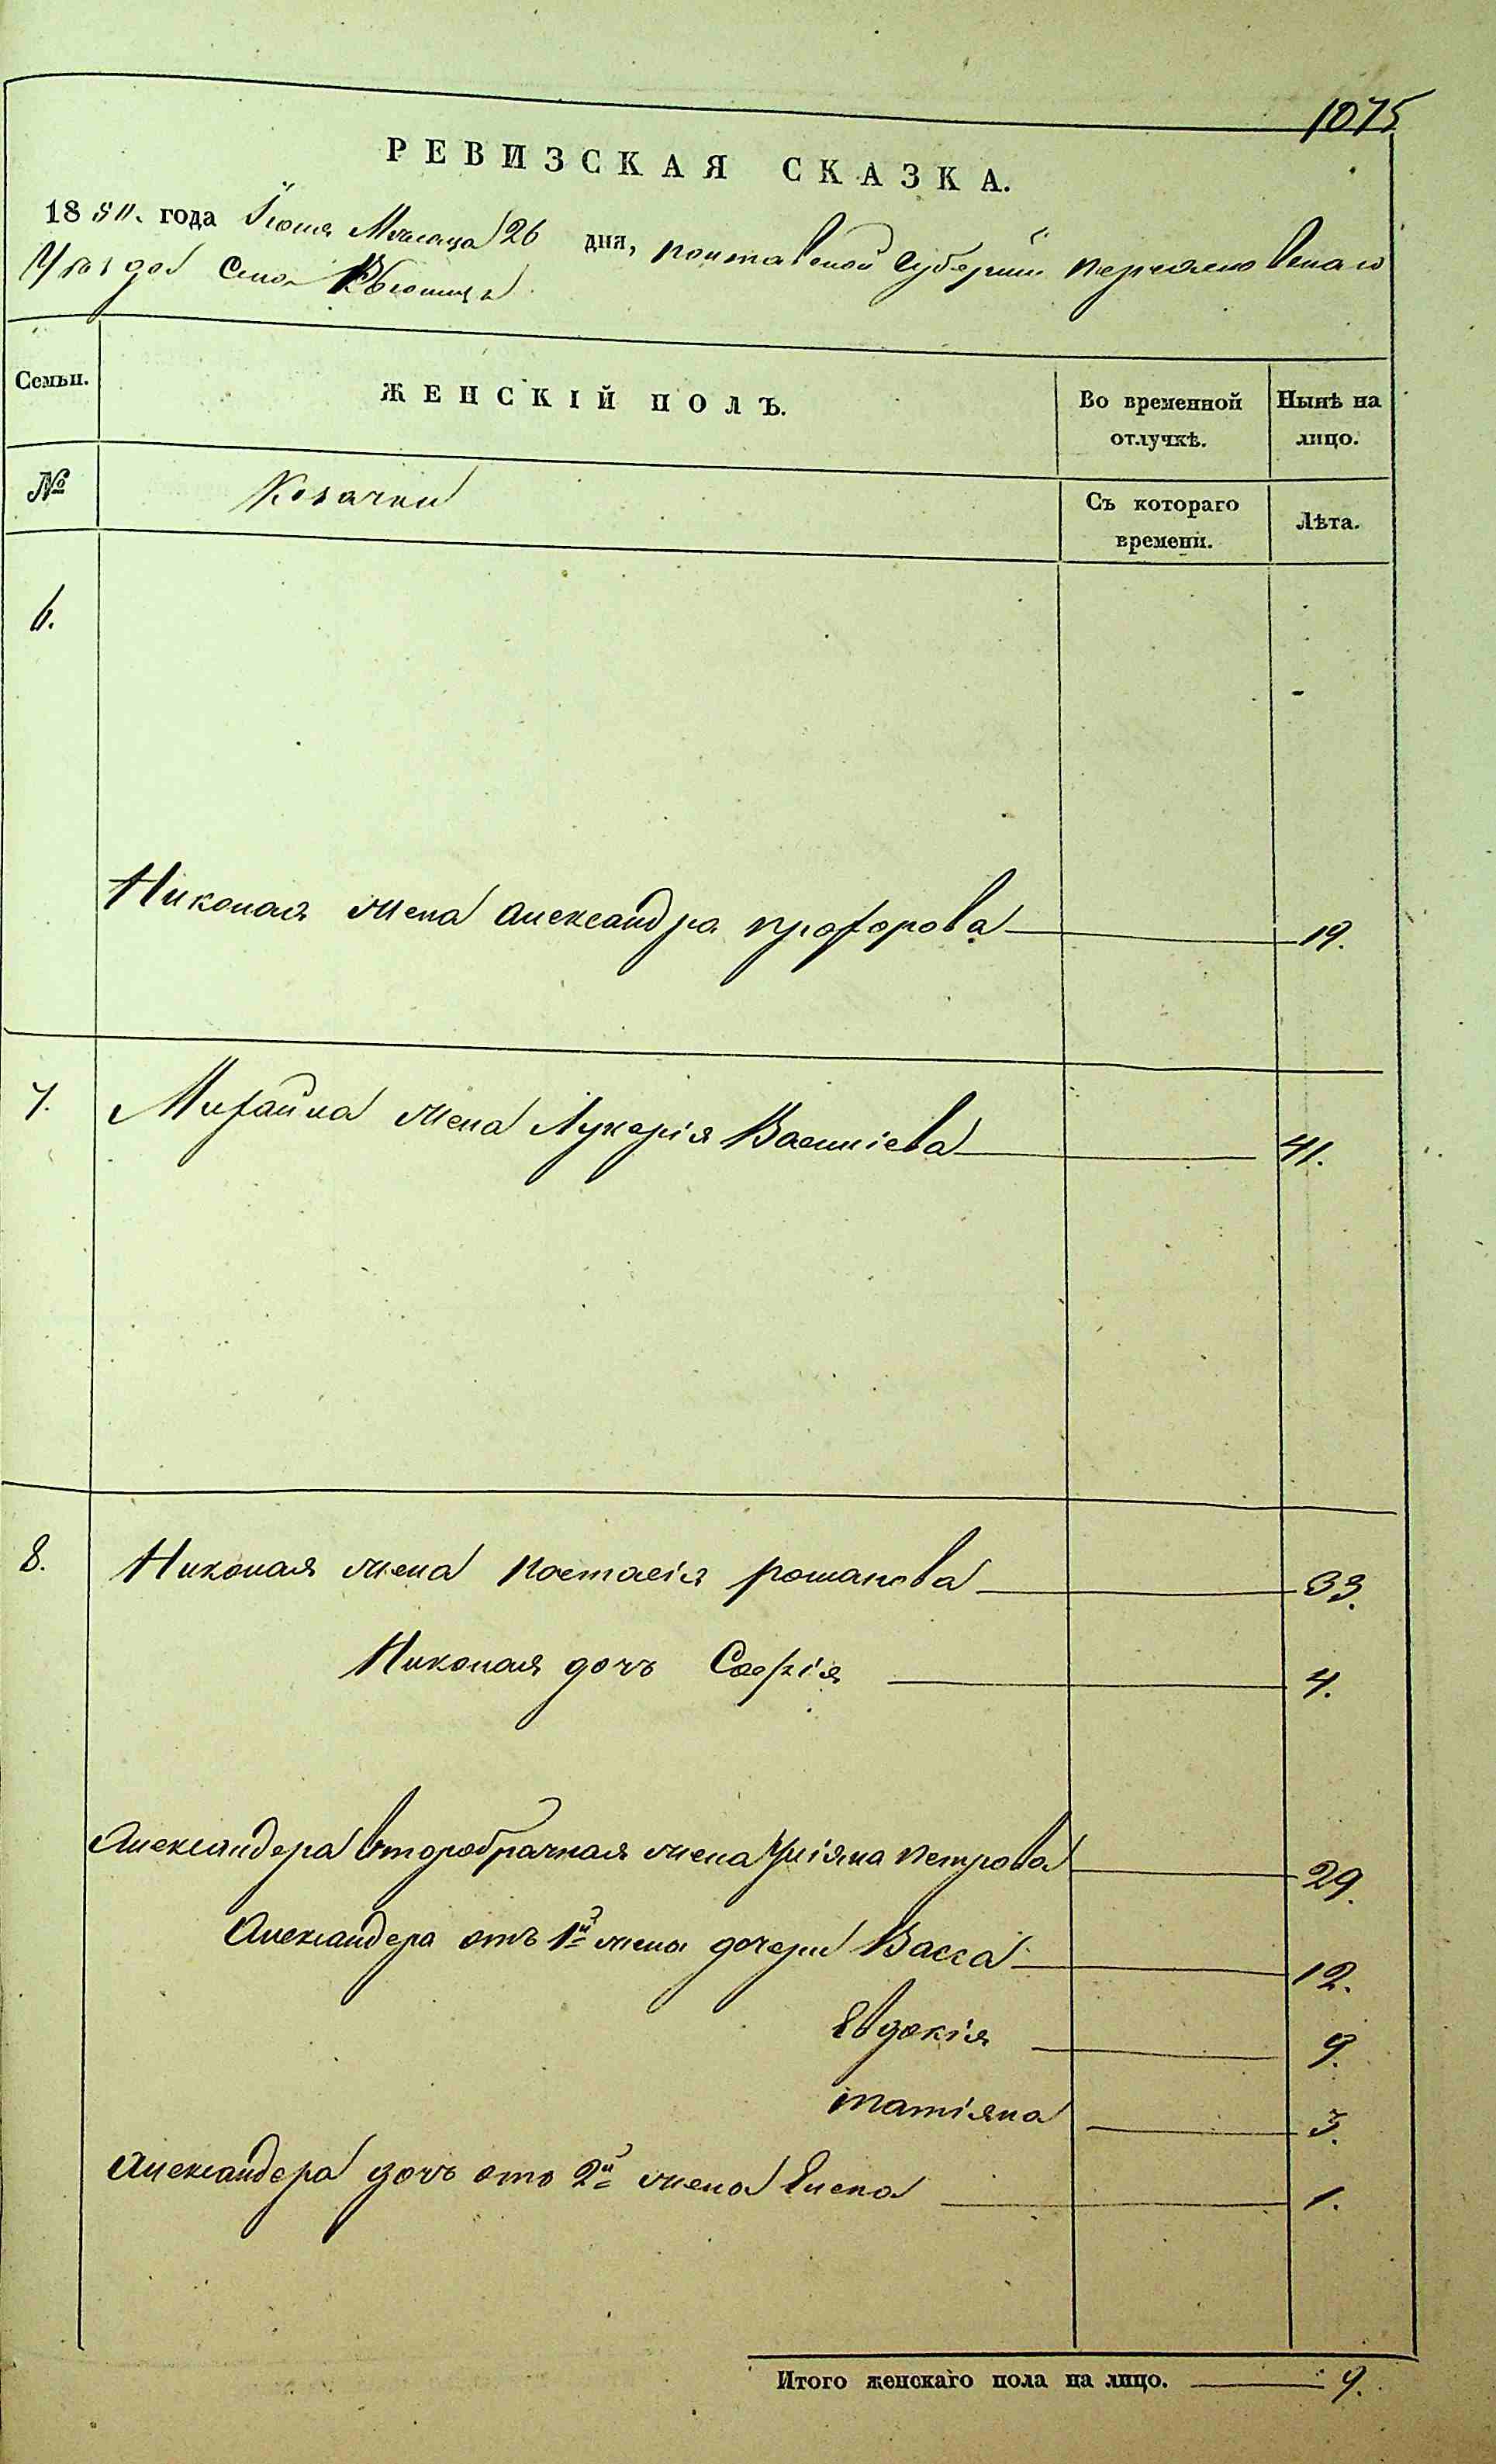 1075
РЕВИЗСКАЯ СКАЗКА.
1850. года Іюня Месяца 26 дня, полтавской Губерніи переяславского
Уезда Села
Семьи.
ЖЕНСКІЙ ПОЛЪ.
Во временной отлучкѣ.
Нынѣ на лицо.
№
Козачки
Съ котораго времени.
Лѣта.
6.
Николая жена александра прохорова 19.
7. Михайла жена Лукерія Василіева 41.
8. Николая жена Настасія романова 33.
Николая дочъ Софія 4.
Александера второбрачная жена Уліяна петрова 29.
Александера отъ 1й жены дочери Васса 12.
Евдокія 9.
татіяна 3.
Александера дочъ отъ 2й жена Елена 1.
Итого женскаго пола на лицо. 9.